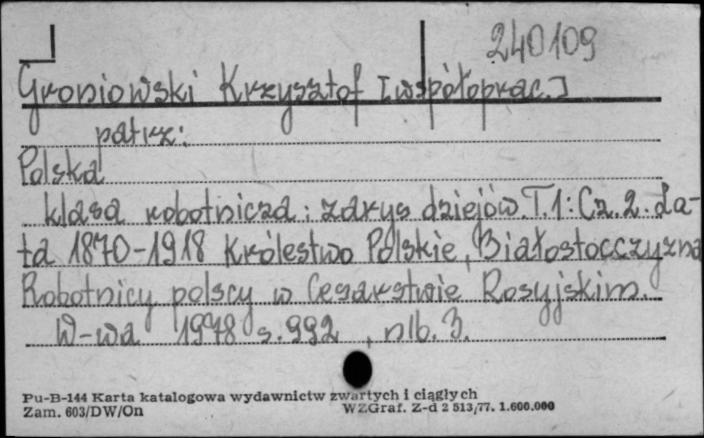 240109
Groniowski Krzysztof [współoprac.]
patrz:
Polska
klasa robotnicza : zarys dziejów. T. 1 : Cz. 2. La-
ta 1870-1918 Królestwo Polskie, Białostocczyzna
Robotnicy polscy w Cesarstwie Rosyjskim.
W-wa 1978 s. 992, nlb. 3.
Pu-B-144 Karta katalogowa wydawnictw zwartych i ciągłych
Zam. 603/DW/On WZGraf. Z-d 2 513/77. 1.600.000